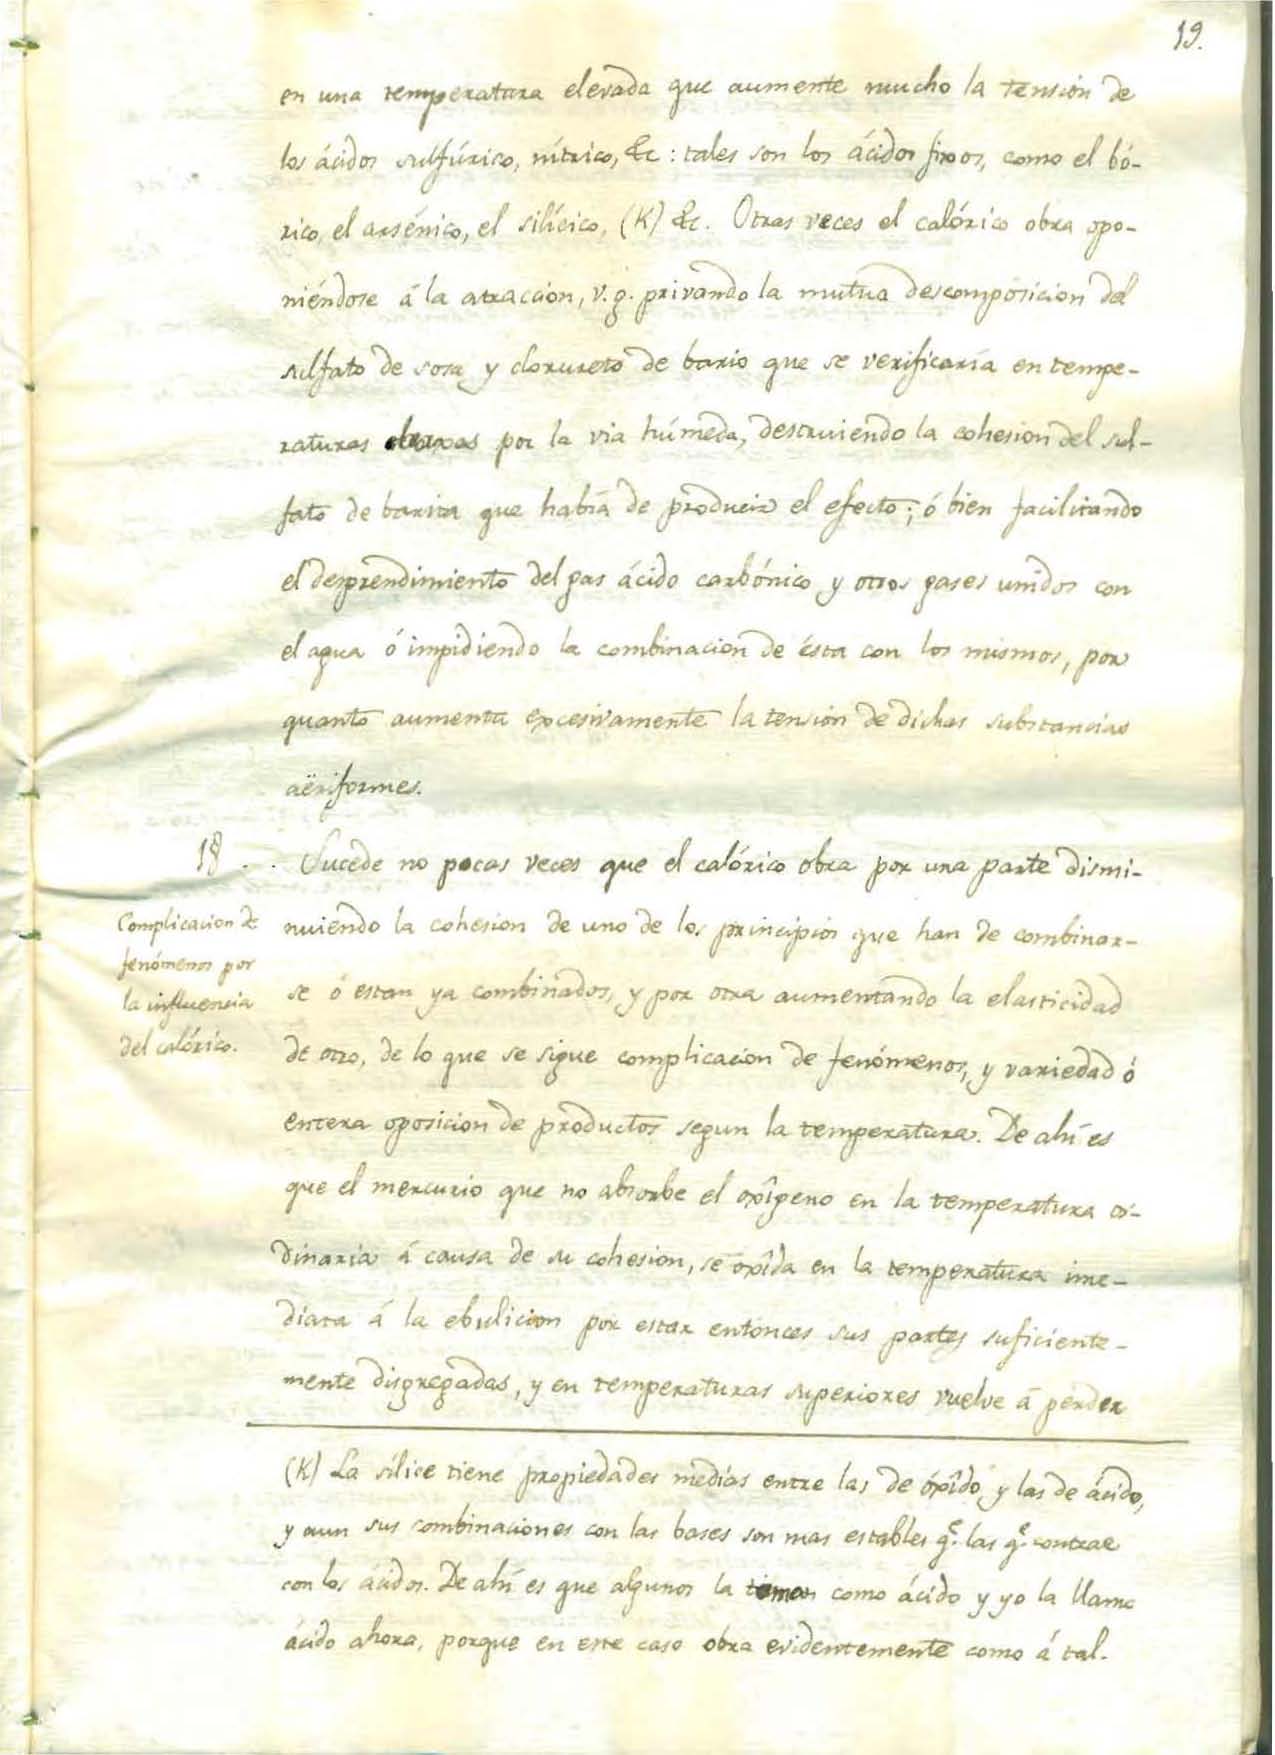 19.
en una temperatura elevada que aumente mucho la tension de
los ácidos sulfúrico, nítrico, &c : tales son los ácidos fixos, como el bó-
rico, el arsénico, el silícico, (K) &c. Otras veces el calórico obra opo-
niéndose á la atraccion, v.g. privando la mutua descomposicion del
sulfato de sosa y clorureto de bario que se verificaría en tempe-
raturas por la via húmeda, destruiendo la cohesion del sul-
fato de barita que habia de producir el efecto; ó bien facilitando
el desprendimiento del gas ácido carbónico y otros gases unidos con
el agua ó impidiendo la combinacion de ésta con los mismos, por
quanto aumenta excesivamente la tension de dichas substancias
aëriformes.
18 . . Sucede no pocas veces que el calórico obra por una parte dismi-
nuiendo la cohesion de uno de los principios que han de combinar-
se ó estan ya combinados, y por otra aumentando la elasticidad
de otro, de lo que se sigue complicacion de fenómenos, y variedad ó
entera oposicion de productos segun la temperatura. De ahí es
que el mercurio que no absorbe el oxîgeno en la temperatura or-
dinaria á causa de su cohesion, se oxîda en la temperatura ime-
diata á la ebulicion por estar entonces sus partes suficiente-
mente disgregadas, y en temperaturas superiores vuelve á perder
Complicacion de
fenómenos por
la influencia
del calórico.
(K) La sílice tiene propiedades medias entre las de óxîdo y las de ácido,
y aun sus combinaciones con las bases son mas estables q.e las q.e contrae
con los ácidos. De ahí es que algunos la toman como ácido y yo la llamo
ácido ahora, porque en este caso obra evidentemente como á tal.